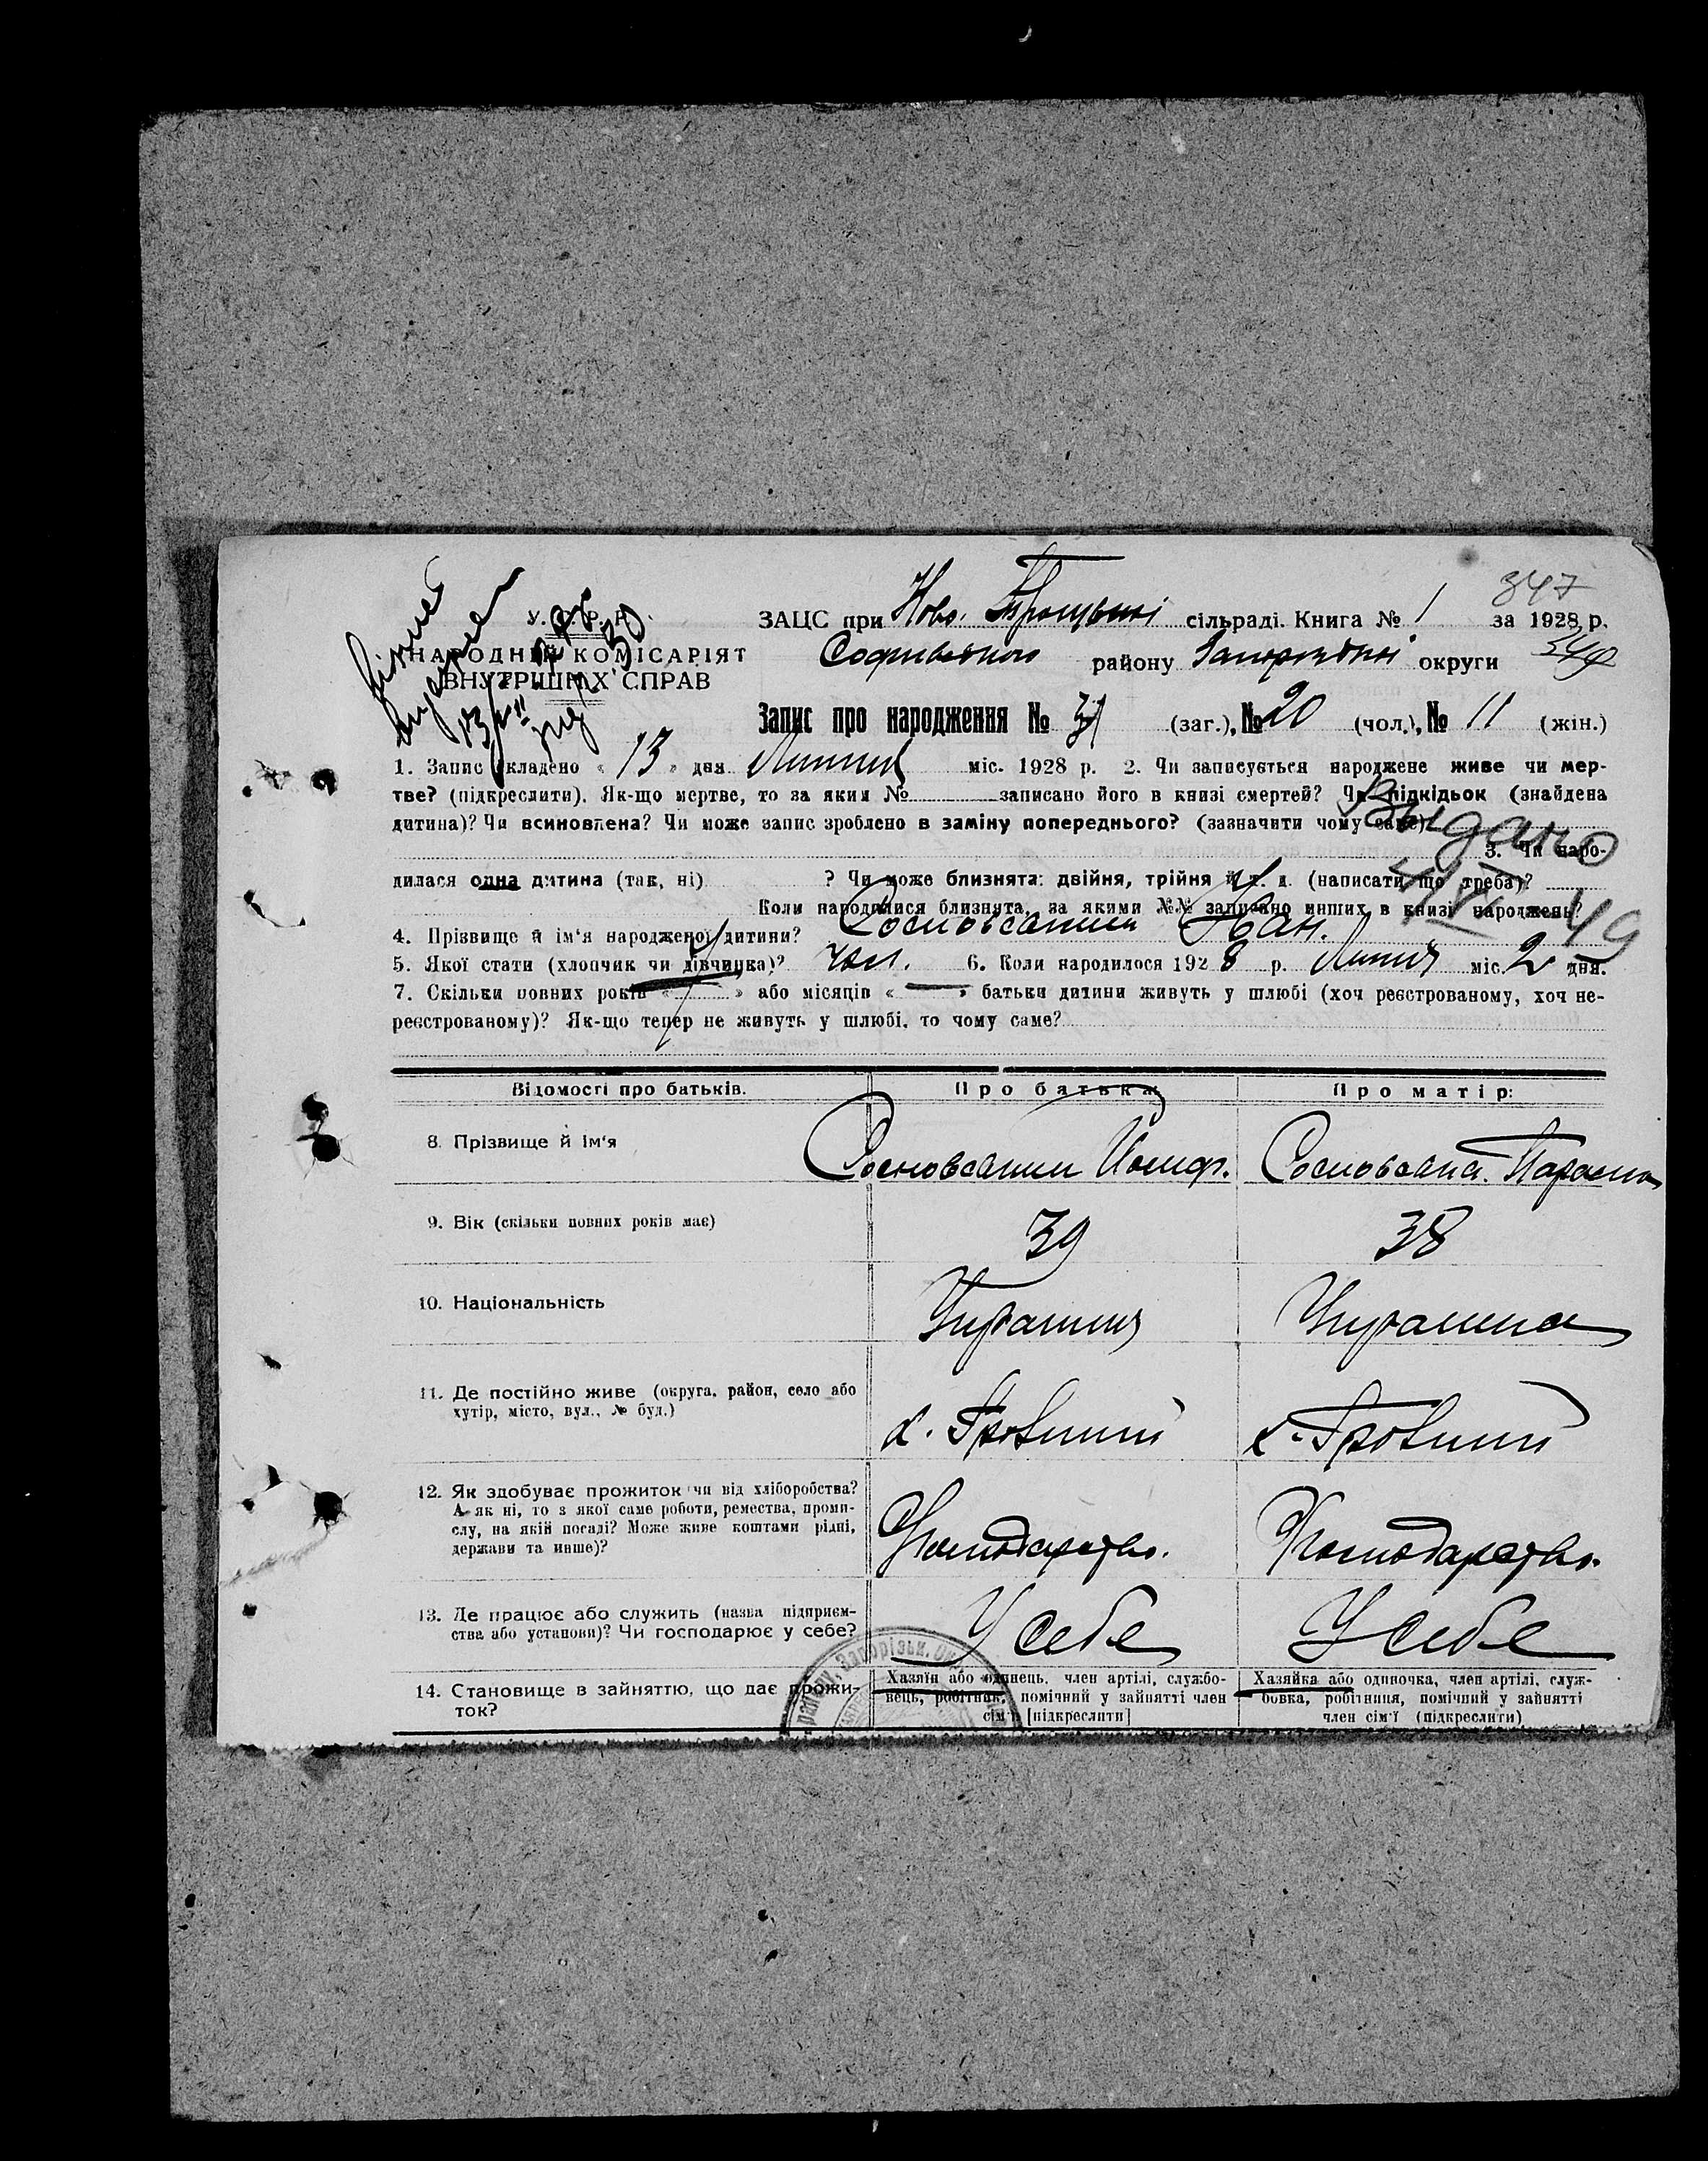 347
У. С. Р. Р.
НАРОДНИЙ КОМІСАРІЯТ
ВНУТРІШНІХ СПРАВ
ЗАЦС при Ново. Троицькі сільраді. Книга № 1 за 1928 р.
Софиевского району Запорізької округи
Запис про народження № 31 (заг.), № 20 (чол.), № 11 (жін.)
1. Запис складено « 13 » дня Липня міс. 1928 р. 2. Чи записується народжене живе чи мер-
тве? (підкреслити). Як-що мертве, то за яким № записано його в книзі смертей? Чи підкідьок (знайдена
дитина)? Чи всиновлена? Чи може запис зроблено в заміну попереднього? (зазначити чому саме)
Выдано
3. Чи наро-
дилася одна дитина (так, ні) ? Чи може близнята: двійня, трійня й т. д. (написати що треба)?
Коли народилися близнята, за якими №№ записано инших в книзі народжень?
49
4. Прізвище й ім'я народженої дитини? Сосновский Иван.
5. Якої стати (хлопчик чи дівчинка)? чол. 6. Коли народилося 1928 р. Липня міс. 2 дня.
7. Скільки повних років « » або місяців « — » батьки дитини живуть у шлюбі (хоч реєстрованому, хоч не-
реєстрованому)? Як-що тепер не живуть у шлюбі, то чому саме?
Відомості про батьків. Про батька: Про матір:
8. Прізвище й ім'я Сосновский Иосиф. Сосновська. Параска
9. Вік (скільки повних років має) 39 38
10. Національність Українц Українка
11. Де постійно живе (округа, район, село або
хутір, місто, вул., № буд.)
12. Як здобуває прожиток чи від хліборобства?
А як ні, то з якої саме роботи, ремества, проми-
слу, на якій посаді? Може живе коштами рідні,
держави та инше)? Господарство. Господарство.
13. Де працює або служить (назва підприєм-
ства або установи)? Чи господарює у себе? У себе У себе
14. Становище в зайняттю, що дає прожи-
ток?
Хазяїн або одинець, член артілі, службо-
вець, робітник, помічний у зайнятті член
сім'ї [підкреслити]
Хазяйка або одиночка, член артілі, служ-
бовка, робітниця, помічний у зайнятті
член сім'ї (підкреслити)